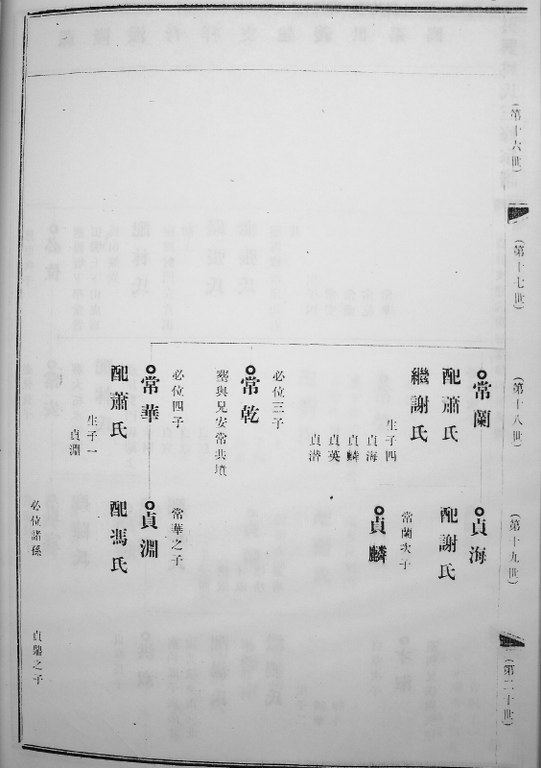 (第十六世)
(第十七世)
(第十八世)
(第十九世)
(第二十世)
常蘭
配蕭氏
繼謝氏
生子四
貞海
貞麟
貞英
貞潜
必位三子
常乾
塟與兄安常共墳
必位四子
常華
配蕭氏
生子一
貞淵
貞海
配謝氏
常蘭次子
貞麟
常華之子
貞淵
配馮氏
必位諸孫
之子